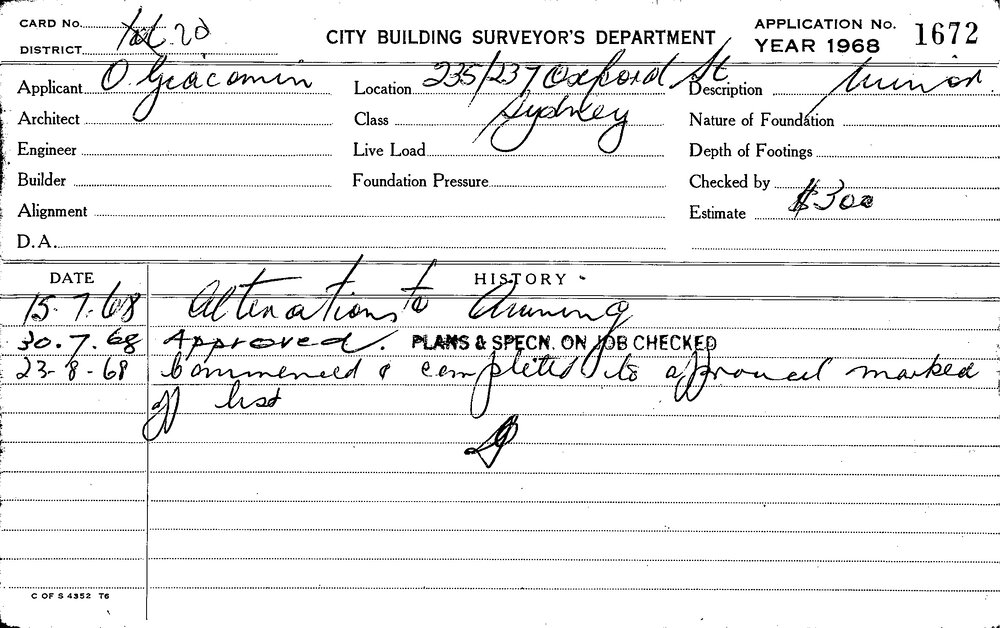 CARD No.
DISTRICT
CITY BUILDING SURVEYOR'S DEPARTMENT
APPLICATION No. 1672
YEAR 1968
Applicant O. Giacomin
Location 235/237 Oxford St
Sydney
Description Minor
Architect
Class
Nature of Foundation
Engineer
Live Load
Depth of Footings
Builder
Foundation Pressure
Checked by
Alignment
Estimate $300
D.A.
DATE
HISTORY
15.7.68 Alterations to Awning
30.7.68 Approved. PLANS & SPECN. ON JOB CHECKED
23-8-68 Commenced & completed to approval marked
off list
C OF S 4352 T6